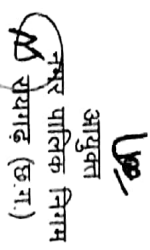 आयुक्त
नगर पालिक निगम
रायगढ़ (छ.ग.)